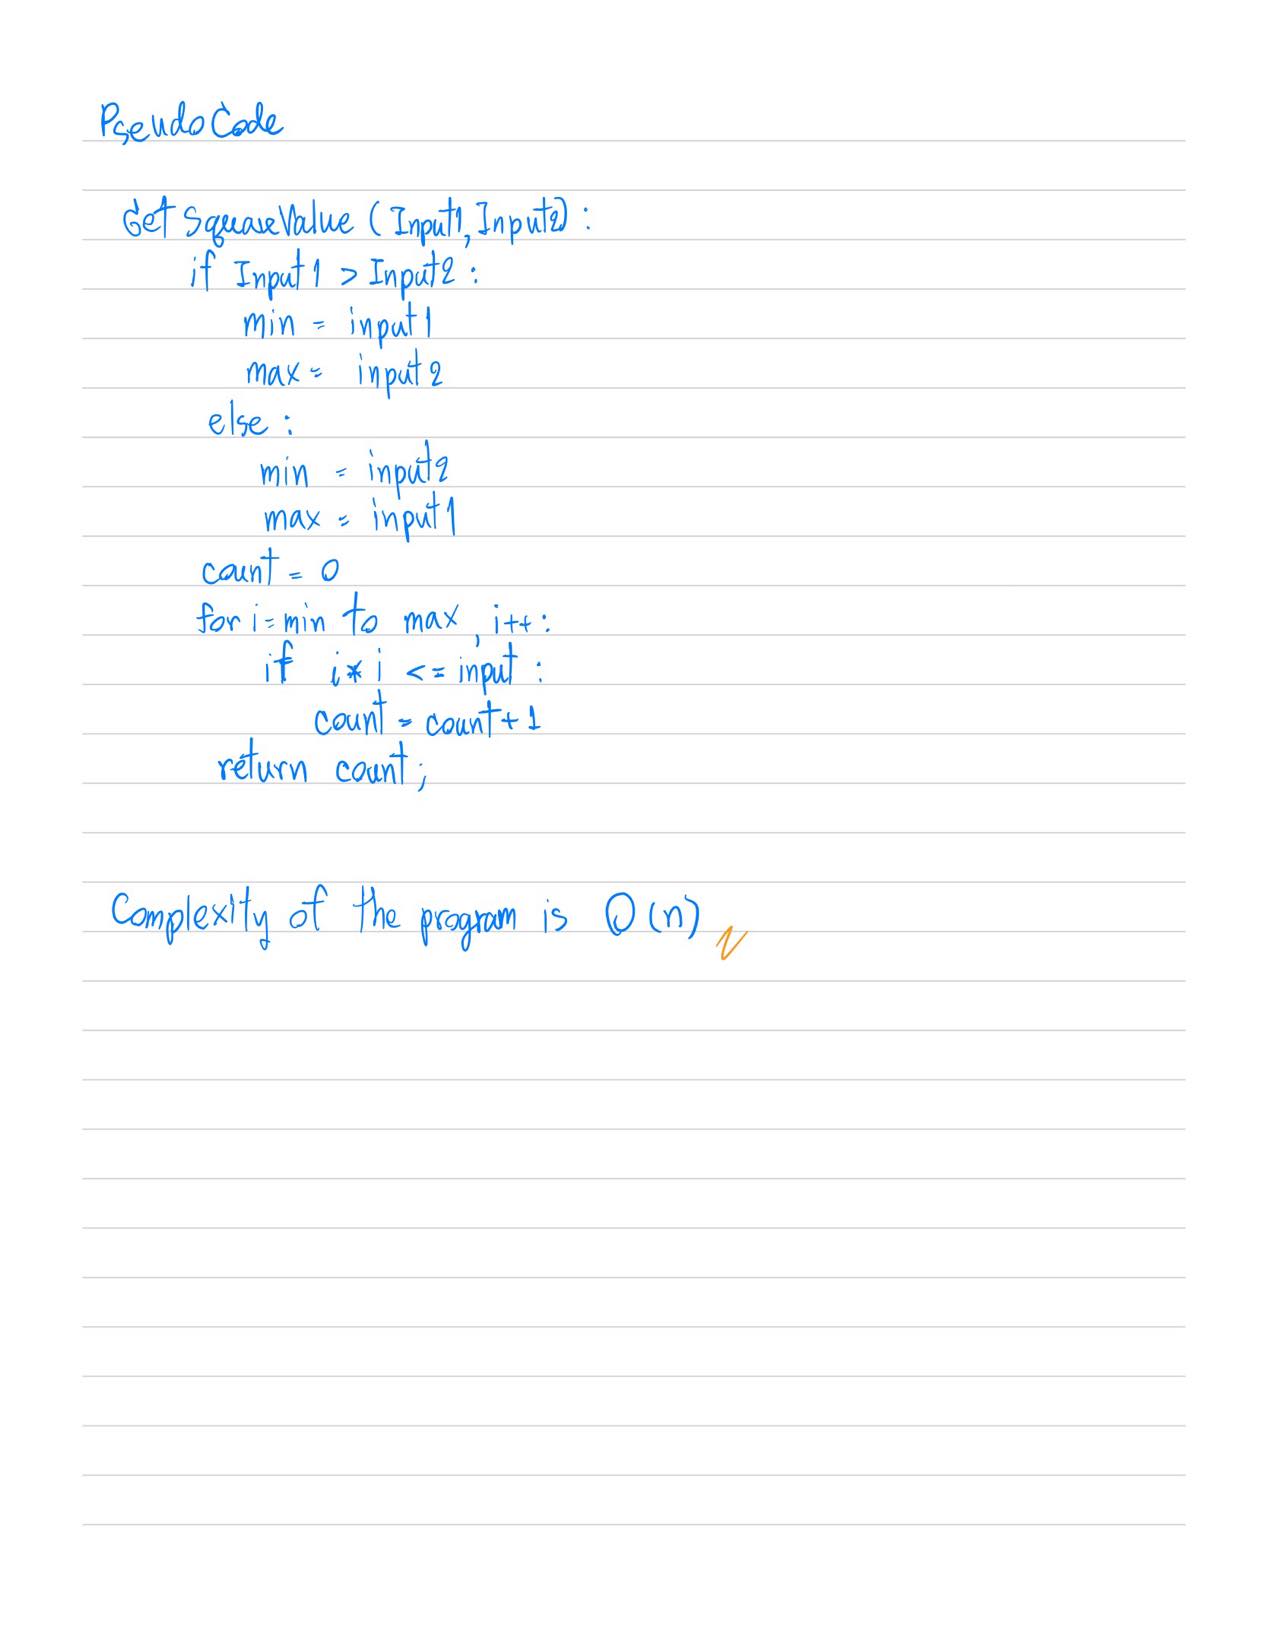 PseudoCode
Get SquareValue (Input1, Input2):
if Input1 > Input2:
min = input1
max = input2
else:
min = input2
max = input1
count = 0
for i=min to max, i++:
if i*i <= input:
count = count+1
return count;
Complexity of the program is O(n)